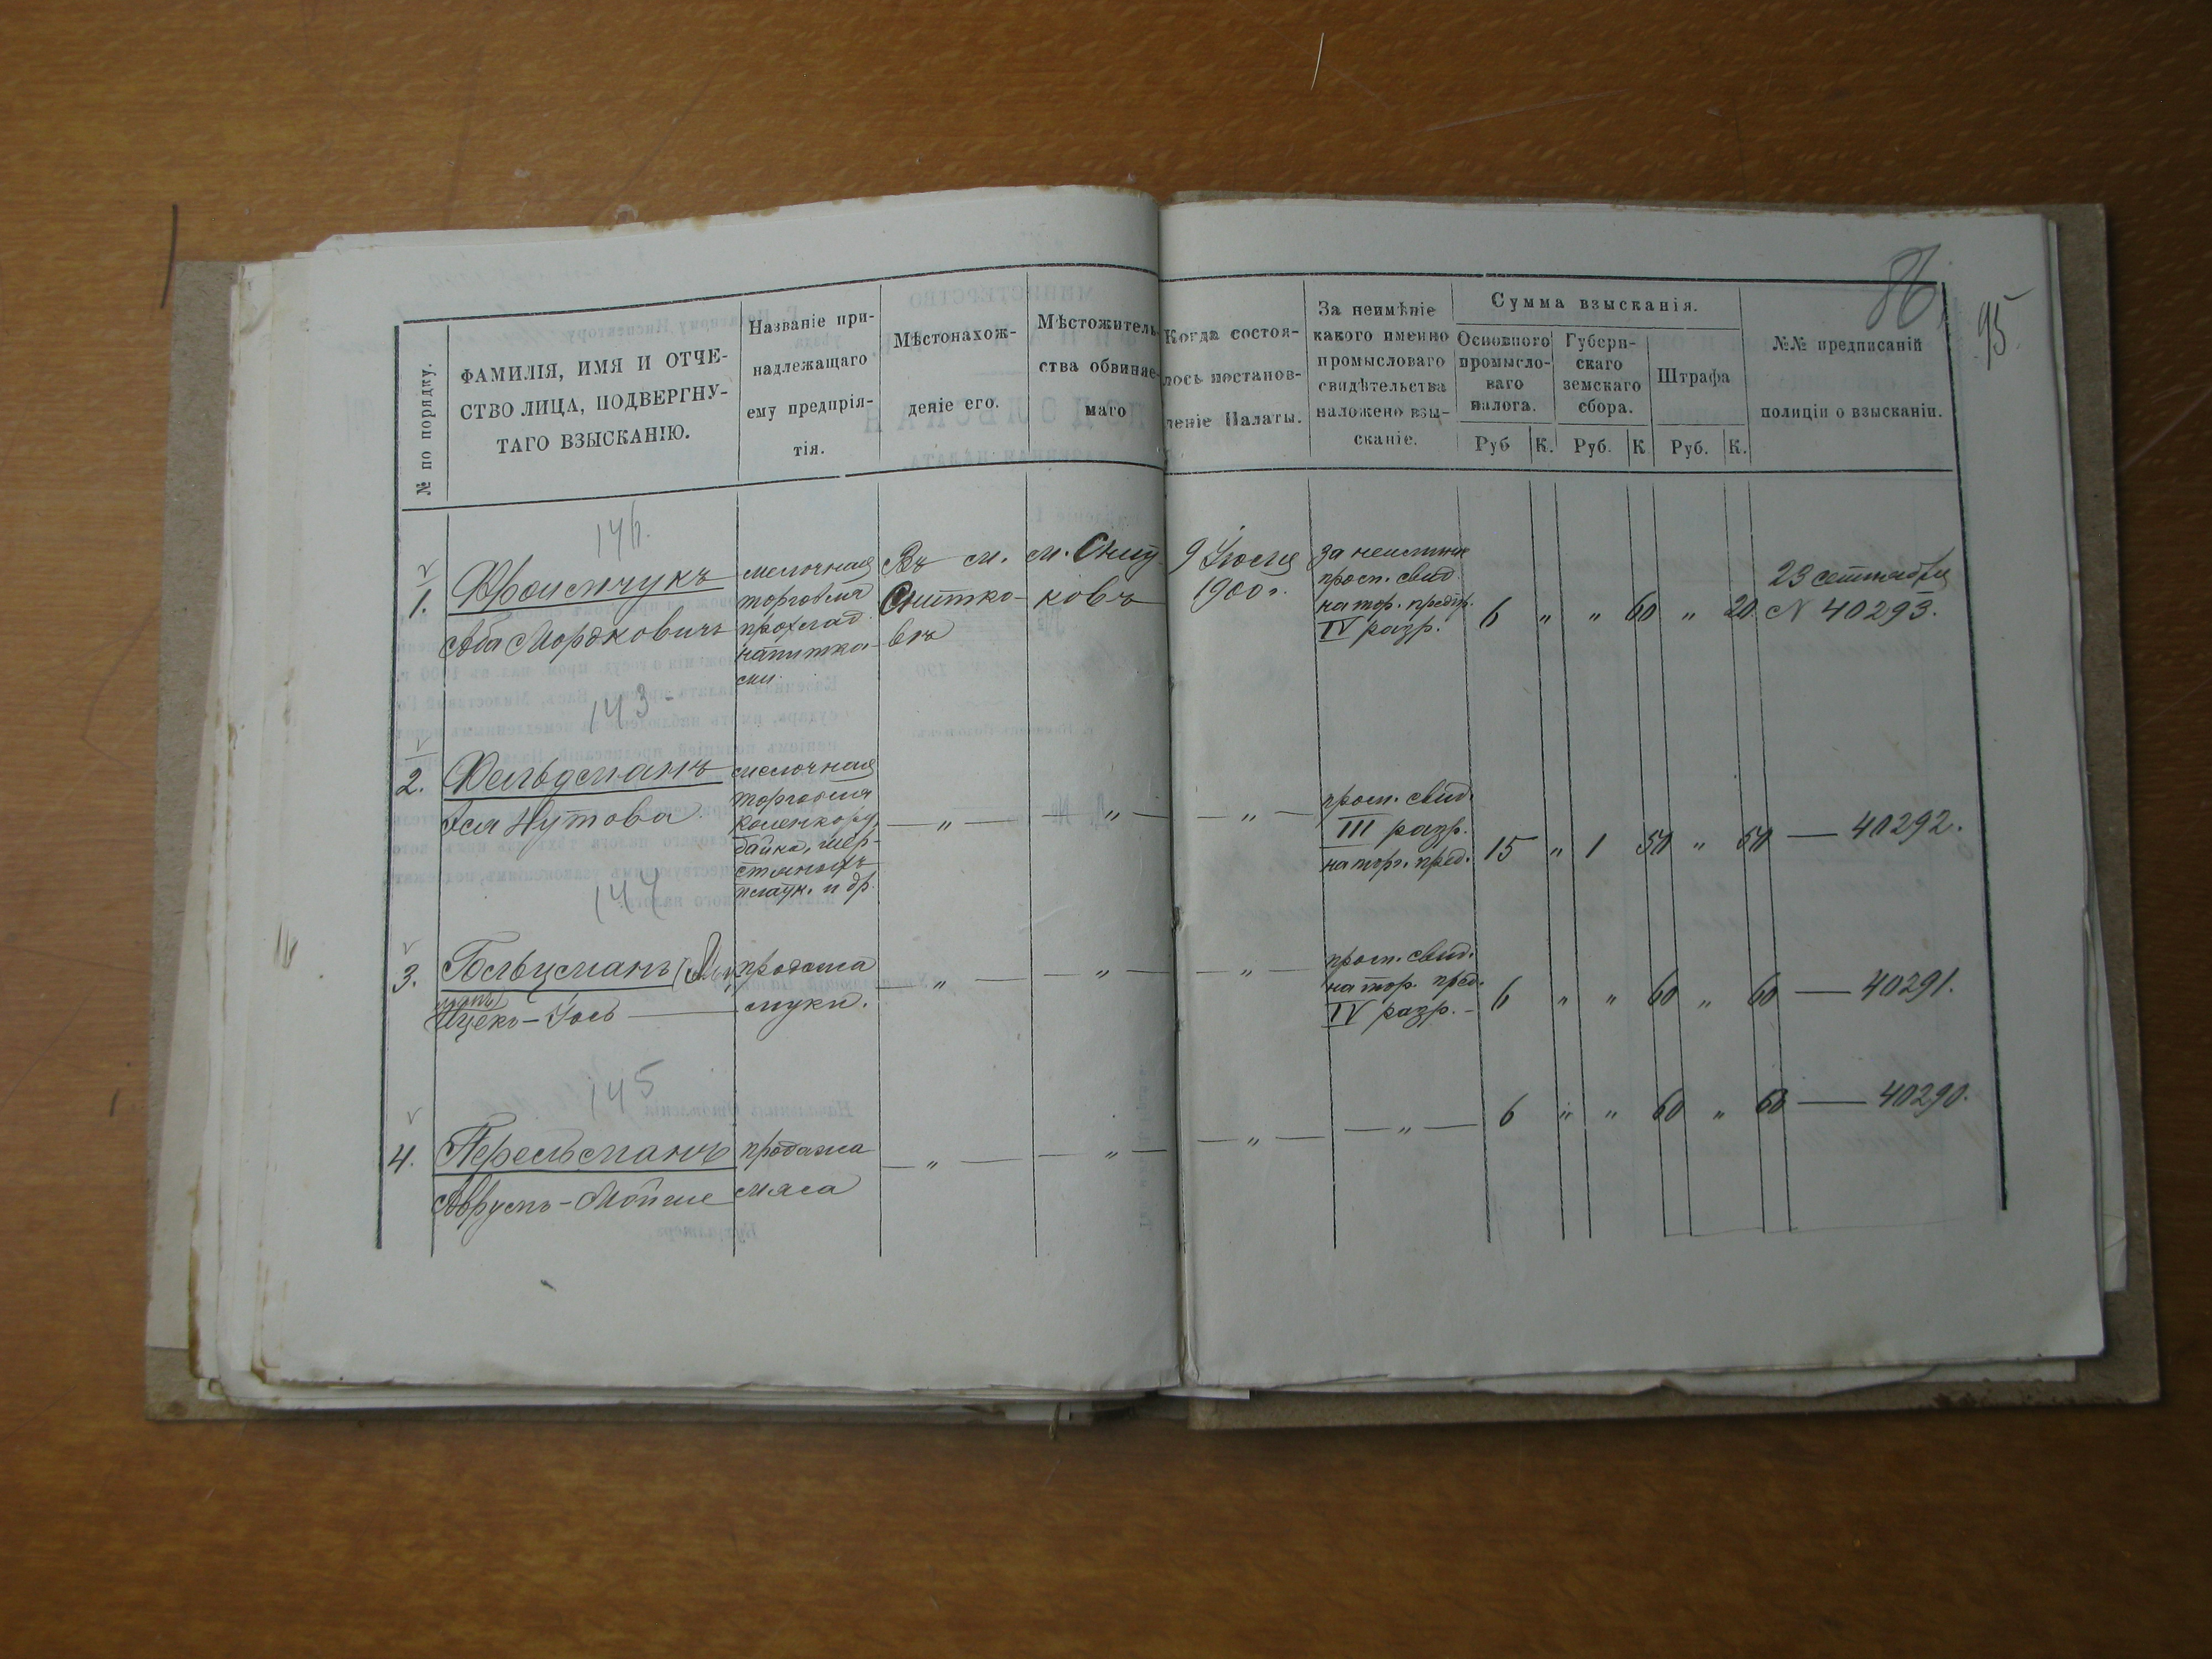 86
95
№ по порядку.
ФАМИЛІЯ, ИМЯ И ОТЧЕ-
СТВО ЛИЦА, ПОДВЕРГНУ-
ТАГО ВЗЫСКАНІЮ.
Названіе при-
надлежащаго
ему предпрія-
тія.
Мѣстонахож-
деніе его.
Мѣстожитель-
ства обвиняе-
маго
Когда состоя-
лось постанов-
леніе Палаты.
За неимѣніе
какого именно
промысловаго
свидѣтельства
наложено взы-
сканіе.
Сумма взысканія.
Основного
промысло-
ваго
налога.
Губерн-
скаго
земскаго
сбора.
Штрафа
Руб К. Руб. К Руб. К.
№№ предписаній
полиціи о взысканіи.
146.
1.
Фроимчукъ
Аба Мордковичъ
мелочная
торговля
прохлад.
напитка-
ми.
Въ м.
Снитко-
вѣ
м. Снит
ковъ
9 Іюля
1900 г.
за неимѣніе
пром. свид.
на тор. предпр.
IV разр.
6 " " 60 " 20.
23 сентября
N 40293.
143-
2.
Фельдманъ
Эся Нутова
мелочная
торговля
коленкору,
байка, шер-
стяныхъ
платк. и др.
— " — — " — — " —
пром. свид.
III разр.
на торг. пред.
15 " 1 50 " 50 — 40292.
144
3.
Гольцманъ
Ицекъ-Іось —
продажа
муки.
— " — — " — — " —
пром. свид.
на тор. пред.
IV разр. -
6 " " 60 " 60 — 40291.
145
4.
Перельманъ
Аврумъ-Мойше
продажа
мяса
— " — — " — — " — — " —
6 " " 60 " 60 — 40290.